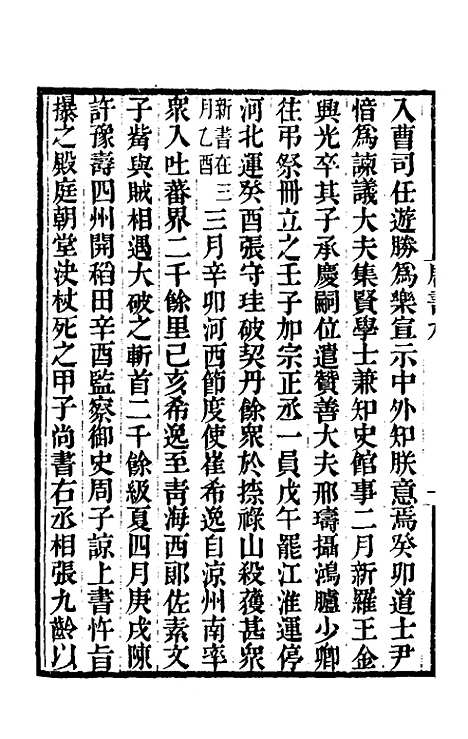 入曹司任遊勝爲樂宣示中外知朕意焉癸卯道士尹
愔爲諫議大夫集賢學士兼知史館事二月新羅王金
興光卒其子承慶嗣位遣贊善大夫邢璹攝鴻臚少卿
往弔祭冊立之壬子加宗正丞一員戊午罷江淮運停
河北運癸酉張守珪破契丹餘衆於捺祿山殺獲甚衆
新書在三
月乙酉
三月辛卯河西節度使崔希逸自涼州南率
衆入吐蕃界二千餘里己亥希逸至青海西郞佐素文
子觜與賊相遇大破之斬首二千餘級夏四月庚戌陳
許豫壽四州開稻田辛酉監察御史周子諒上書忤旨
㩧之殿庭朝堂決杖死之甲子尚書右丞相張九齡以